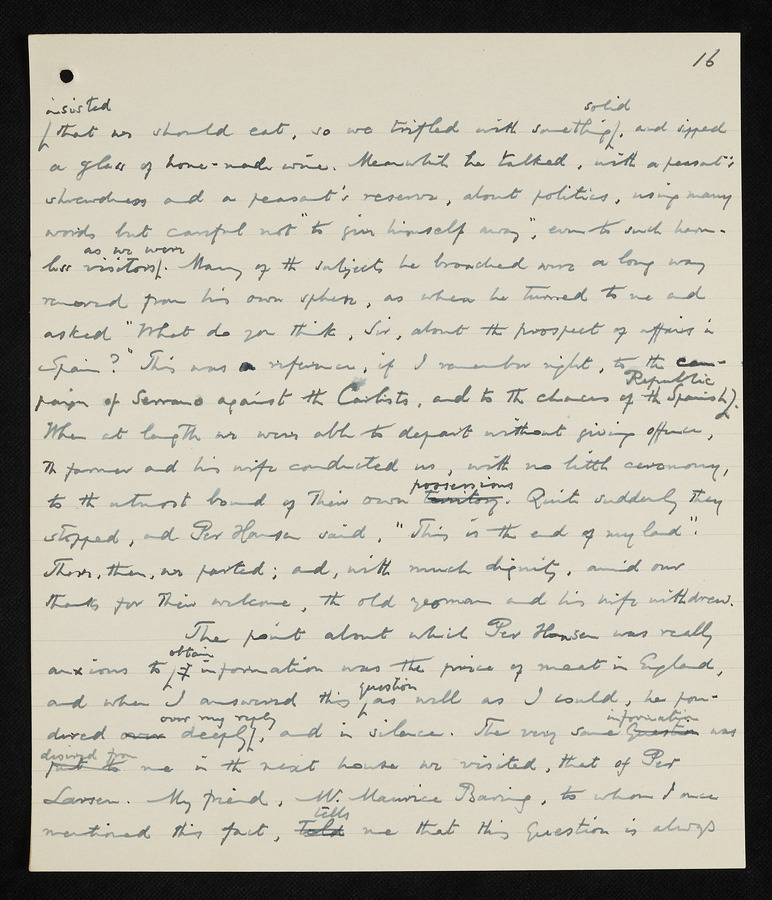 16
insisted solid
that we should eat, so we trifled with something, and sipped
a glass of home-made wine. Meanwhile he talked, with a peasant's
shrewdness and a peasant's reserve, about politics, using many
words but careful not "to give himself away", even to such harm-
as we were
less visitors. Many of the subjects he broached were a long way
removed from his own sphere, as when he turned to me and
asked "What do you think, Sir, about the prospect of affairs in
Spain?" This was a reference, if I remember right, to the cam-
Republic
paign of Serrano against the Carlists, and to the chances of the Spanish.
When at length we were able to depart without giving offence,
the farmer and his wife conducted us, with no little ceremony,
possessions
to the utmost bound of their own territory. Quite suddenly they
stopped, and Per Hansen said, "This is the end of my land".
There, then, we parted; and, with much dignity, amid our
thanks for their welcome, the old yeoman and his wife withdrew.
The point about which Per Hansen was really
obtain
anxious to information was the price of meat in England,
question
and when I answered this as well as I could, he pon-
over my reply information
dered over deeply, and in silence. The very same Question was
desired from
put to me in the next house we visited, that of Per
Larsen. My friend, Mr. Maurice Baring, to whom I once
tells
mentioned this fact, told me that this question is always